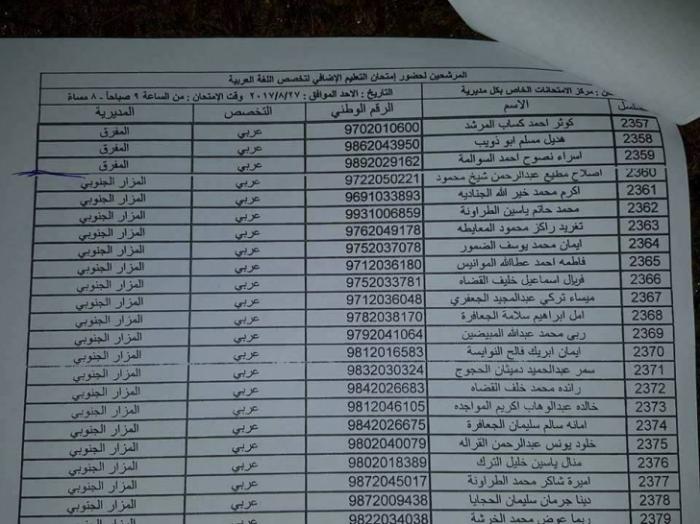 المرشحين لحضور إمتحان التعليم الإضافي لتخصص اللغة العربية
مركز الامتحانات الخاص بكل مديرية التاريخ : الاحد الموافق : ٢٠١٧/٨/٢٧ وقت الإمتحان : من الساعة ٩ صباحاً - ٨ مساءً
الاسم الرقم الوطني التخصص المديرية
2357 كوثر احمد كساب المرشد 9702010600 عربي المفرق
2358 هديل مسلم ابو ذويب 9862043950 عربي المفرق
2359 اسراء نصوح احمد السوالمة 9892029162 عربي المفرق
2360 اصلاح مطيع عبدالرحمن شيخ محمود 9722050221 عربي المزار الجنوبي
2361 اكرم محمد خير الله الجناديه 9691033893 عربي المزار الجنوبي
2362 محمد حاتم ياسين الطراونة 9931006859 عربي المزار الجنوبي
2363 تغريد راكز محمود المعايطه 9762049178 عربي المزار الجنوبي
2364 ايمان محمد يوسف الضمور 9752037078 عربي المزار الجنوبي
2365 فاطمه احمد عطاالله الموانيس 9712036180 عربي المزار الجنوبي
2366 فريال اسماعيل خليف القضاه 9752033781 عربي المزار الجنوبي
2367 ميساء تركي عبدالمجيد الجعفري 9712036048 عربي المزار الجنوبي
2368 امل ابراهيم سلامة الجعافرة 9782038170 عربي المزار الجنوبي
2369 ربى محمد عبدالله المبيضين 9792041064 عربي المزار الجنوبي
2370 ايمان ابريك فالح النوايسة 9812016583 عربي المزار الجنوبي
2371 سمر عبدالحميد دميثان الحجوج 9832030324 عربي المزار الجنوبي
2372 رائده محمد خلف القضاه 9842026683 عربي المزار الجنوبي
2373 خالده عبدالوهاب اكريم المواجده 9812046105 عربي المزار الجنوبي
2374 امانه سالم سليمان الجعافرة 9842026675 عربي المزار الجنوبي
2375 خلود يونس عبدالرحمن القراله 9802040079 عربي المزار الجنوبي
2376 منال ياسين خليل الترك 9802018389 عربي المزار الجنوبي
2377 اميرة شاكر محمد الطراونة 9872045017 عربي المزار الجنوبي
2378 دينا جرمان سليمان الحجايا 9872009438 عربي المزار الجنوبي
2379 ريما عوض محمد الخرشة 9822034038 عربي المزار الجنوبي